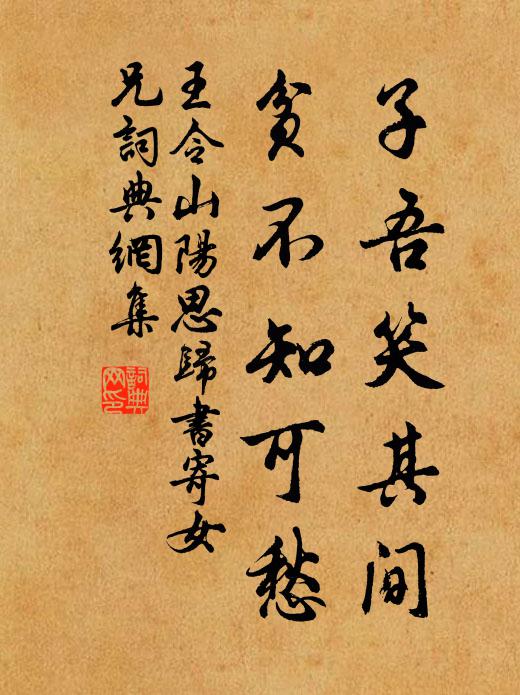 子吾笑其间
贫不知可愁
王令山陽思歸書寄女
兄詞典網集
詞典
网印